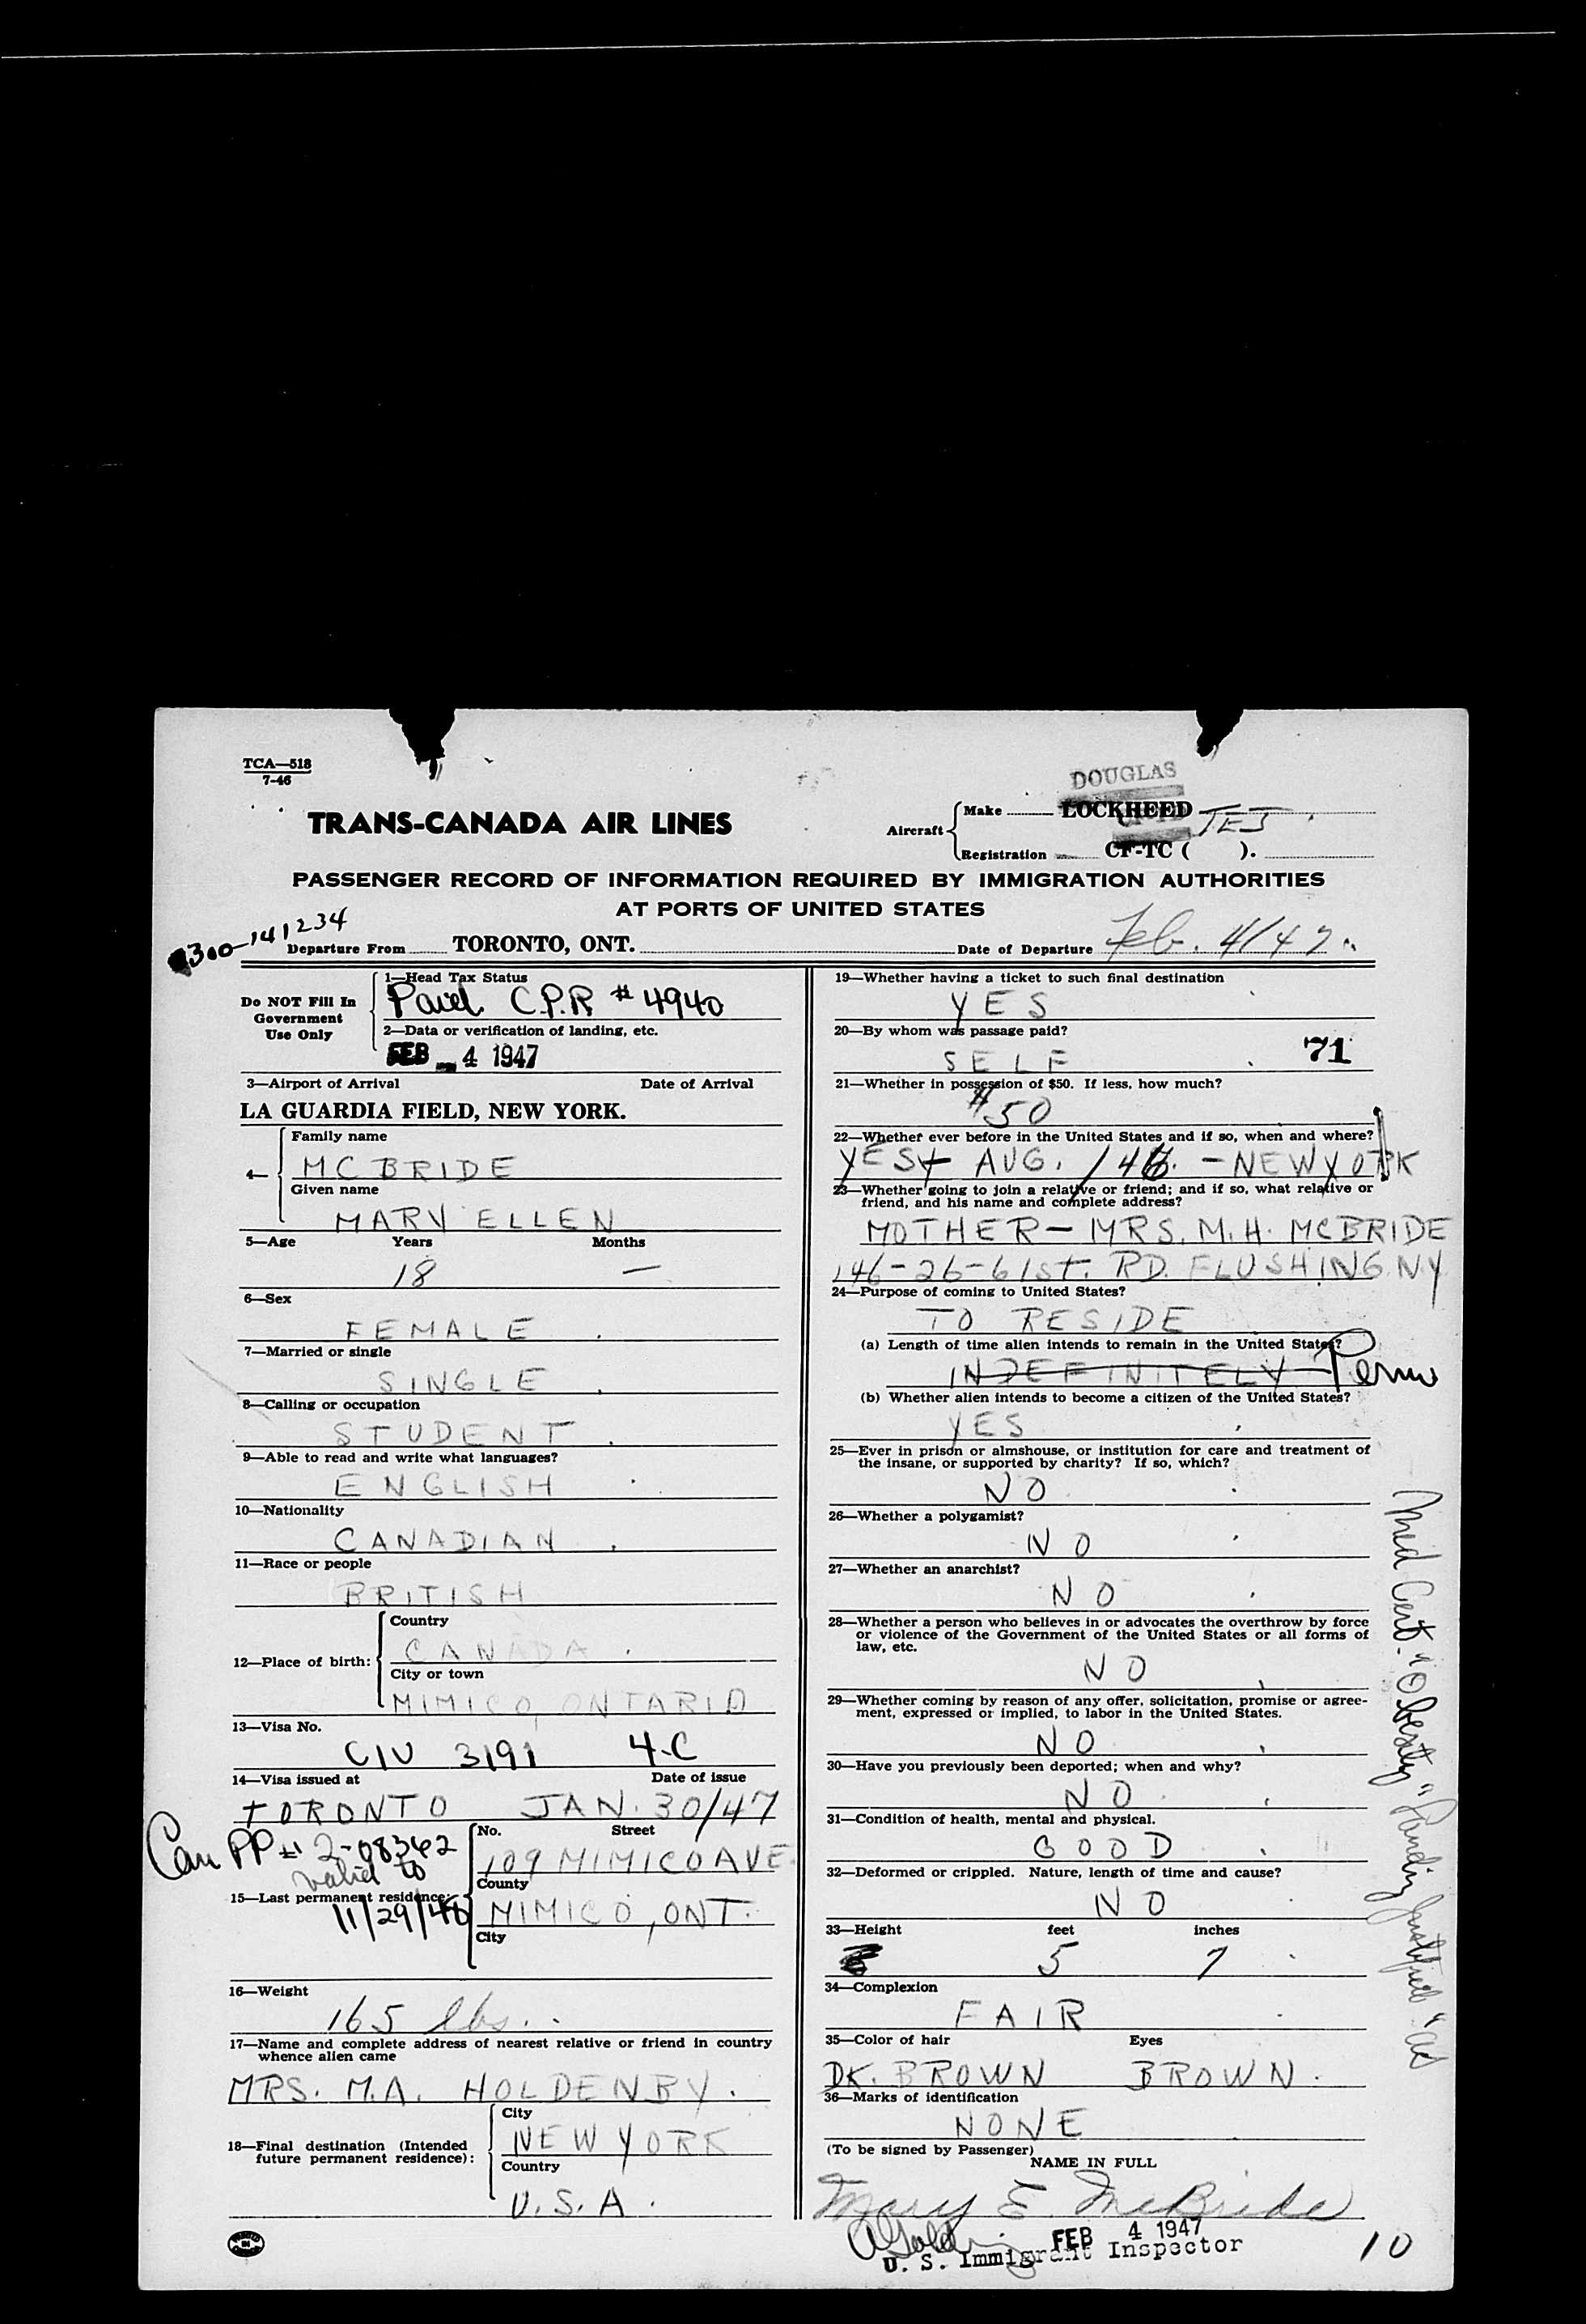 TCA—518
7-46
DOUGLAS
TRANS-CANADA AIR LINES
Aircraft
Make LOCKHEED TEJ
Registration CF-TC ( ).
PASSENGER RECORD OF INFORMATION REQUIRED BY IMMIGRATION AUTHORITIES
AT PORTS OF UNITED STATES
0300-141234
Departure From TORONTO, ONT. Date of Departure Feb. 4/47
Do NOT Fill In Government Use Only
1—Head Tax Status
Paid C.P.R #4940
2—Data or verification of landing, etc.
FEB 4 1947
3—Airport of Arrival Date of Arrival
LA GUARDIA FIELD, NEW YORK.
4—
Family name
MCBRIDE
Given name
MARY ELLEN
5—Age Years Months
18 —
6—Sex
FEMALE
7—Married or single
SINGLE
8—Calling or occupation
STUDENT
9—Able to read and write what languages?
ENGLISH
10—Nationality
CANADIAN
11—Race or people
BRITISH
12—Place of birth:
Country
CANADA
City or town
MIMICO, ONTARIO
13—Visa No.
CIV 3191 4-C
14—Visa issued at Date of issue
TORONTO JAN. 30/47
Can PP # 2-08342
valid to
11/29/48
15—Last permanent residence:
No. Street
109 MIMICO AVE
County
MIMICO, ONT.
City
16—Weight
165 lbs.
17—Name and complete address of nearest relative or friend in country
whence alien came
MRS. M.A. HOLDENBY.
18—Final destination (Intended
future permanent residence):
City
NEW YORK
Country
U.S.A.
19—Whether having a ticket to such final destination
YES
20—By whom was passage paid?
SELF
71
21—Whether in possession of $50. If less, how much?
$50
22—Whether ever before in the United States and if so, when and where?
YES AUG. /46. - NEW YORK
23—Whether going to join a relative or friend; and if so, what relative or
friend, and his name and complete address?
MOTHER - MRS. M.H. MCBRIDE
146-26-61st. RD. FLUSHING. N.Y
24—Purpose of coming to United States?
TO RESIDE
(a) Length of time alien intends to remain in the United States?
INDEFINITELY Perm
(b) Whether alien intends to become a citizen of the United States?
YES
25—Ever in prison or almshouse, or institution for care and treatment of
the insane, or supported by charity? If so, which?
NO
26—Whether a polygamist?
NO
27—Whether an anarchist?
NO
28—Whether a person who believes in or advocates the overthrow by force
or violence of the Government of the United States or all forms of
law, etc.
NO
29—Whether coming by reason of any offer, solicitation, promise or agree-
ment, expressed or implied, to labor in the United States.
NO
30—Have you previously been deported; when and why?
NO
31—Condition of health, mental and physical.
GOOD
32—Deformed or crippled. Nature, length of time and cause?
NO
33—Height feet inches
5 7
34—Complexion
FAIR
35—Color of hair Eyes
DK. BROWN BROWN.
36—Marks of identification
NONE
(To be signed by Passenger)
NAME IN FULL
Mary E. McBride
FEB 4 1947
U. S. Immigrant Inspector
10
Med Cert. "Obesity" Landing Justified